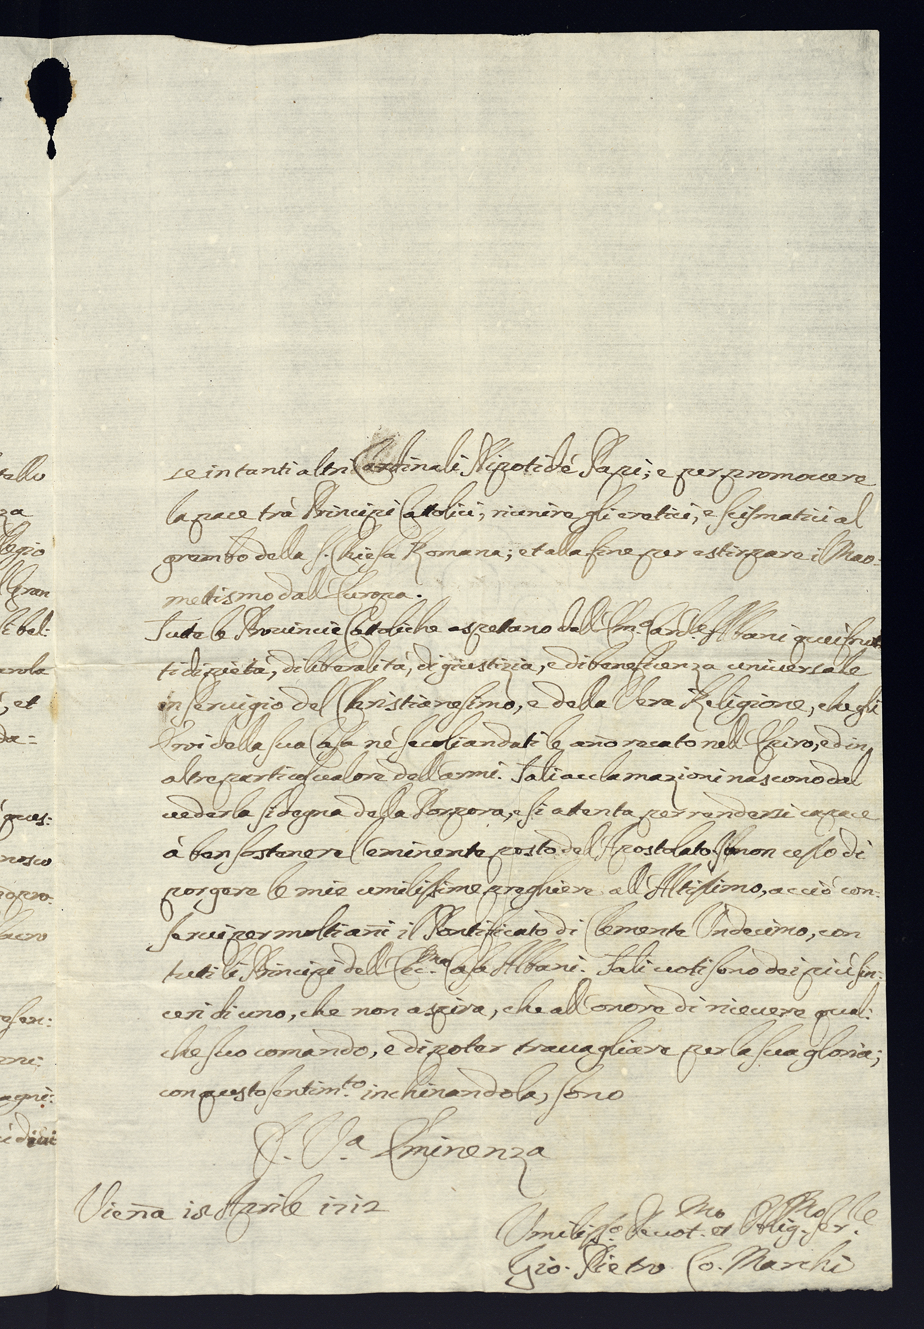 tello
za
legio
Gran
bel:
arola
, et
da=
ques:
nosco
propo:
acro
esen:
erni:
agni:
é di lui
se in tanti altri Cardinali Nipoti dé Papi; e per promovere
la pace trà Principi Cattolici, riunire gli eretici, e scismatici al
grembo della S. Chiesa Romana; et alla fine per estirpare il Mao-
metismo dall'Europa.
Tutte le Provincie Cattoliche aspettano dall' Em.o Card.le Albani quei frut
ti di pietà, di liberalità, di giustizia, e di beneficenza universale
in servigio del Christianesimo, e della Vera Religione, che gli
Avi della sua Casa né secoli andati le ano recato nell'Epiro, ed in
altre parti col valore dell'armi. Tali acclamazioni nascono dal
vederla sì degna della Porpora, e sì attenta per rendersi capace
à ben sostenere l'eminente posto dell'Apostolato. Io non cesso di
porgere le mie umilissime preghiere all'Altissimo, acciò con:
servi per molti añi il Pontificato di Clemente Undecimo, con
tutti li Principi dell'Ecc.ma Casa Albani. Tali voti sono dei più sin:
ceri di uno, che non aspira, che all'onore di ricevere qual:
che suo comando, e di poter travagliare per la sua gloria;
con questo sentim.to inchinandola, sono
D. V.a Eminenza
Vieña 18 Aprile 1712
Umiliss.o Devot.mo et Oblig.mo Ser.le
Gio. Pietro Co. Marchi